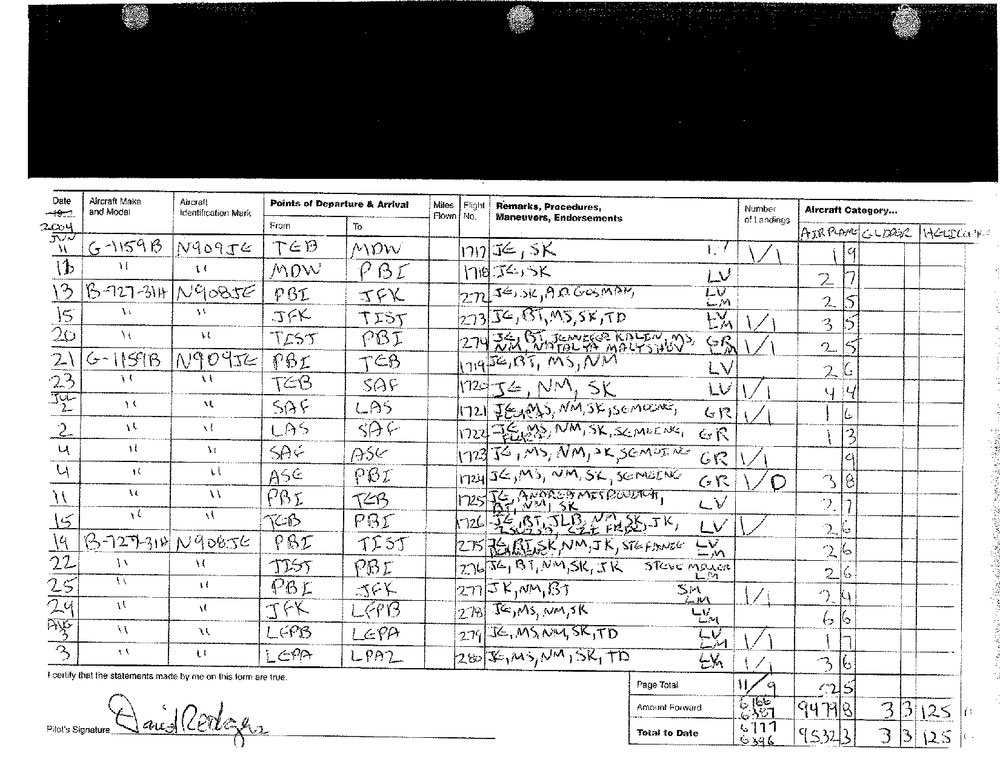 Date Aircraft Make and Model Aircraft Identification Mark Points of Departure & Arrival Miles Flown Flight No. Remarks, Procedures, Maneuvers, Endorsements Number of Landings Aircraft Category...
2004 From To AIRPLANE GLIDER
JUN 11 G-1159B N909JE TEB MDW 1717 JE, SK 1/1 1 9
" " MDW PBI 1718 JE, SK LV 2 7
13 B-727-31H N908JE PBI JFK 272 JE, SK, LV LM 2 5
15 " " JFK TIST 273 JE, BT, MS, SK, TD LV LM 1/1 3 5
20 " " TIST PBI 274 JE, BT, JENNIFER KALIN, MS, NM, NATALYA MALYSHOV GR LM 1/1 2 5
21 G-1159B N909JE PBI TEB 1719 JE, BT, MS, NM LV 2 6
23 " " TEB SAF 1720 JE, NM, SK LV 1/1 4 4
JUL 2 " " SAF LAS 1721 JE, MS, NM, SK, GR 1/1 1 6
2 " " LAS SAF 1722 JE, MS, NM, SK, GR 1 3
4 " " SAF ASE 1723 JE, MS, NM, SK, GR 1/1 9
4 " " ASE PBI 1724 JE, MS, NM, SK, GR 1/0 3 8
11 " " PBI TEB 1725 JE, BT, NM, SK LV 2 7
15 " " TEB PBI 1726 JE, BT, JLB, NM, SK, JK, LV 1/ 2 6
19 B-727-31H N908JE PBI TIST 275 JE, BT, SK, NM, JK, LV LM 2 6
22 " " TIST PBI 276 JE, BT, NM, SK, JK STEVE MILLER LM 2 6
25 " " PBI JFK 277 JK, NM, BT SM LM 1/1 2 4
29 " " JFK LFPB 278 JE, MS, NM, SK LV LM 6 6
AUG 3 " " LFPB LEPA 279 JE, MS, NM, SK, TD LV LM 1/1 1 7
3 " " LEPA LPAZ 280 JE, MS, NM, SK, TD 1/1 3 6
I certify that the statements made by me on this form are true.
Page Total 11/9 52 5
Amount Forward 6166 6387 9479 8 3 3 125
Pilot's Signature David Rodgers
Total to Date 6177 6396 9532 3 3 3 125